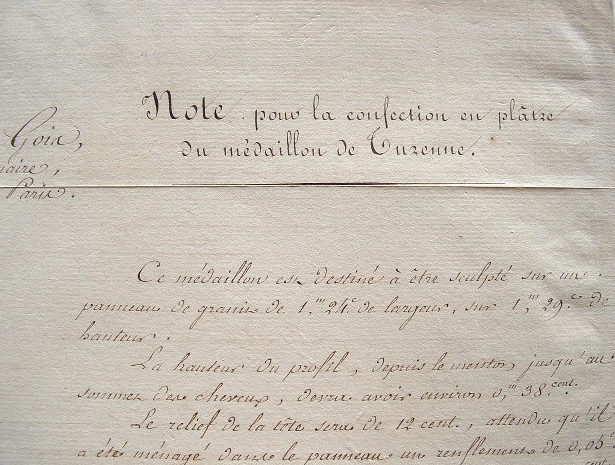 Note pour la confection en plâtre
du médaillon de Turenne.
Goix,
naire,
Paris.
Ce médaillon est destiné à être sculpté sur un
panneau de granit de 1,m 24c de largeur, sur 1,m 29c de
hauteur.
La hauteur du profil, depuis le menton, jusqu'au
sommet des cheveux, devra avoir environ 0,m 38 cent.
Le relief de la tête sera de 12 cent., attendu qu'il
a été ménagé dans le panneau un renflement de 0,05c